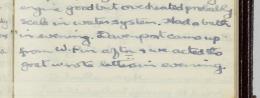 engine good but overheated probably
scale in water system. Had a bath
in evening. Davenport came up
from W. P. in aftn & we acted the
goat wrote letters in evening.